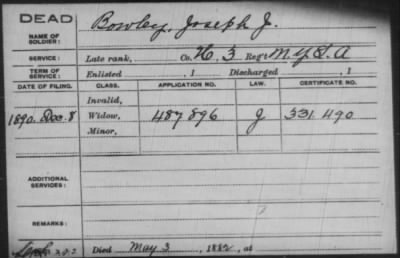 DEAD
NAME OF SOLDIER: Bowley, Joseph J.
SERVICE: Late rank, Co. H, 3 Reg't N.Y.L.A
TERM OF SERVICE: Enlisted , 1 Discharged , 1
DATE OF FILING. CLASS. APPLICATION NO. LAW. CERTIFICATE NO.
Invalid,
1890. Dec. 8 Widow, 487 896 J 331 490
Minor,
ADDITIONAL SERVICES:
REMARKS:
Died May 3 , 1882, at